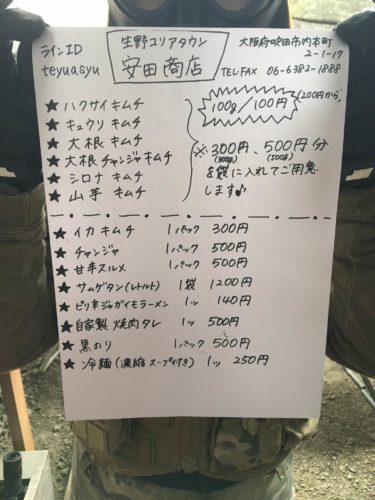 ラインID
teyuasyu
生野コリアタウン
安田商店
大阪府吹田市内本町
2-1-17
TEL・FAX 06-6382-1888
★ ハクサイ キムチ
★ キュウリ キムチ
★ 大根 キムチ
★ 大根 チャンジャ キムチ
★ シロナ キムチ
★ 山芋 キムチ
100g/100円
(200円から)
※ 300円、500円分
(300g) (500g)
を袋に入れてご用意
します♪
★ イカ キムチ 1パック 300円
★ チャンジャ 1パック 500円
★ 甘辛スルメ 1パック 500円
★ サムゲタン(レトルト) 1袋 1200円
★ ピリ辛ジャガイモラーメン 1ッ 140円
★ 自家製 焼肉タレ 1ッ 500円
★ 黒のり 1パック 500円
★ 冷麺(濃縮スープ付き) 1ッ 250円